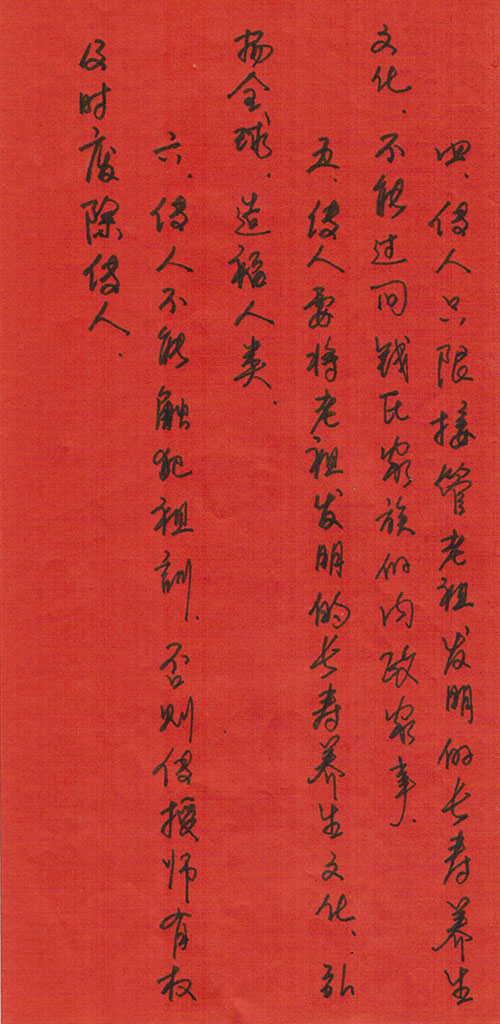 四、传人只限接管老祖发明的长寿养生
文化、不能过问钱氏家族的内政家事.
五、传人要将老祖发明的长寿养生文化、弘
扬全球、造福人类.
六、传人不能触犯祖訓、否则传授师有权
及时废除传人.